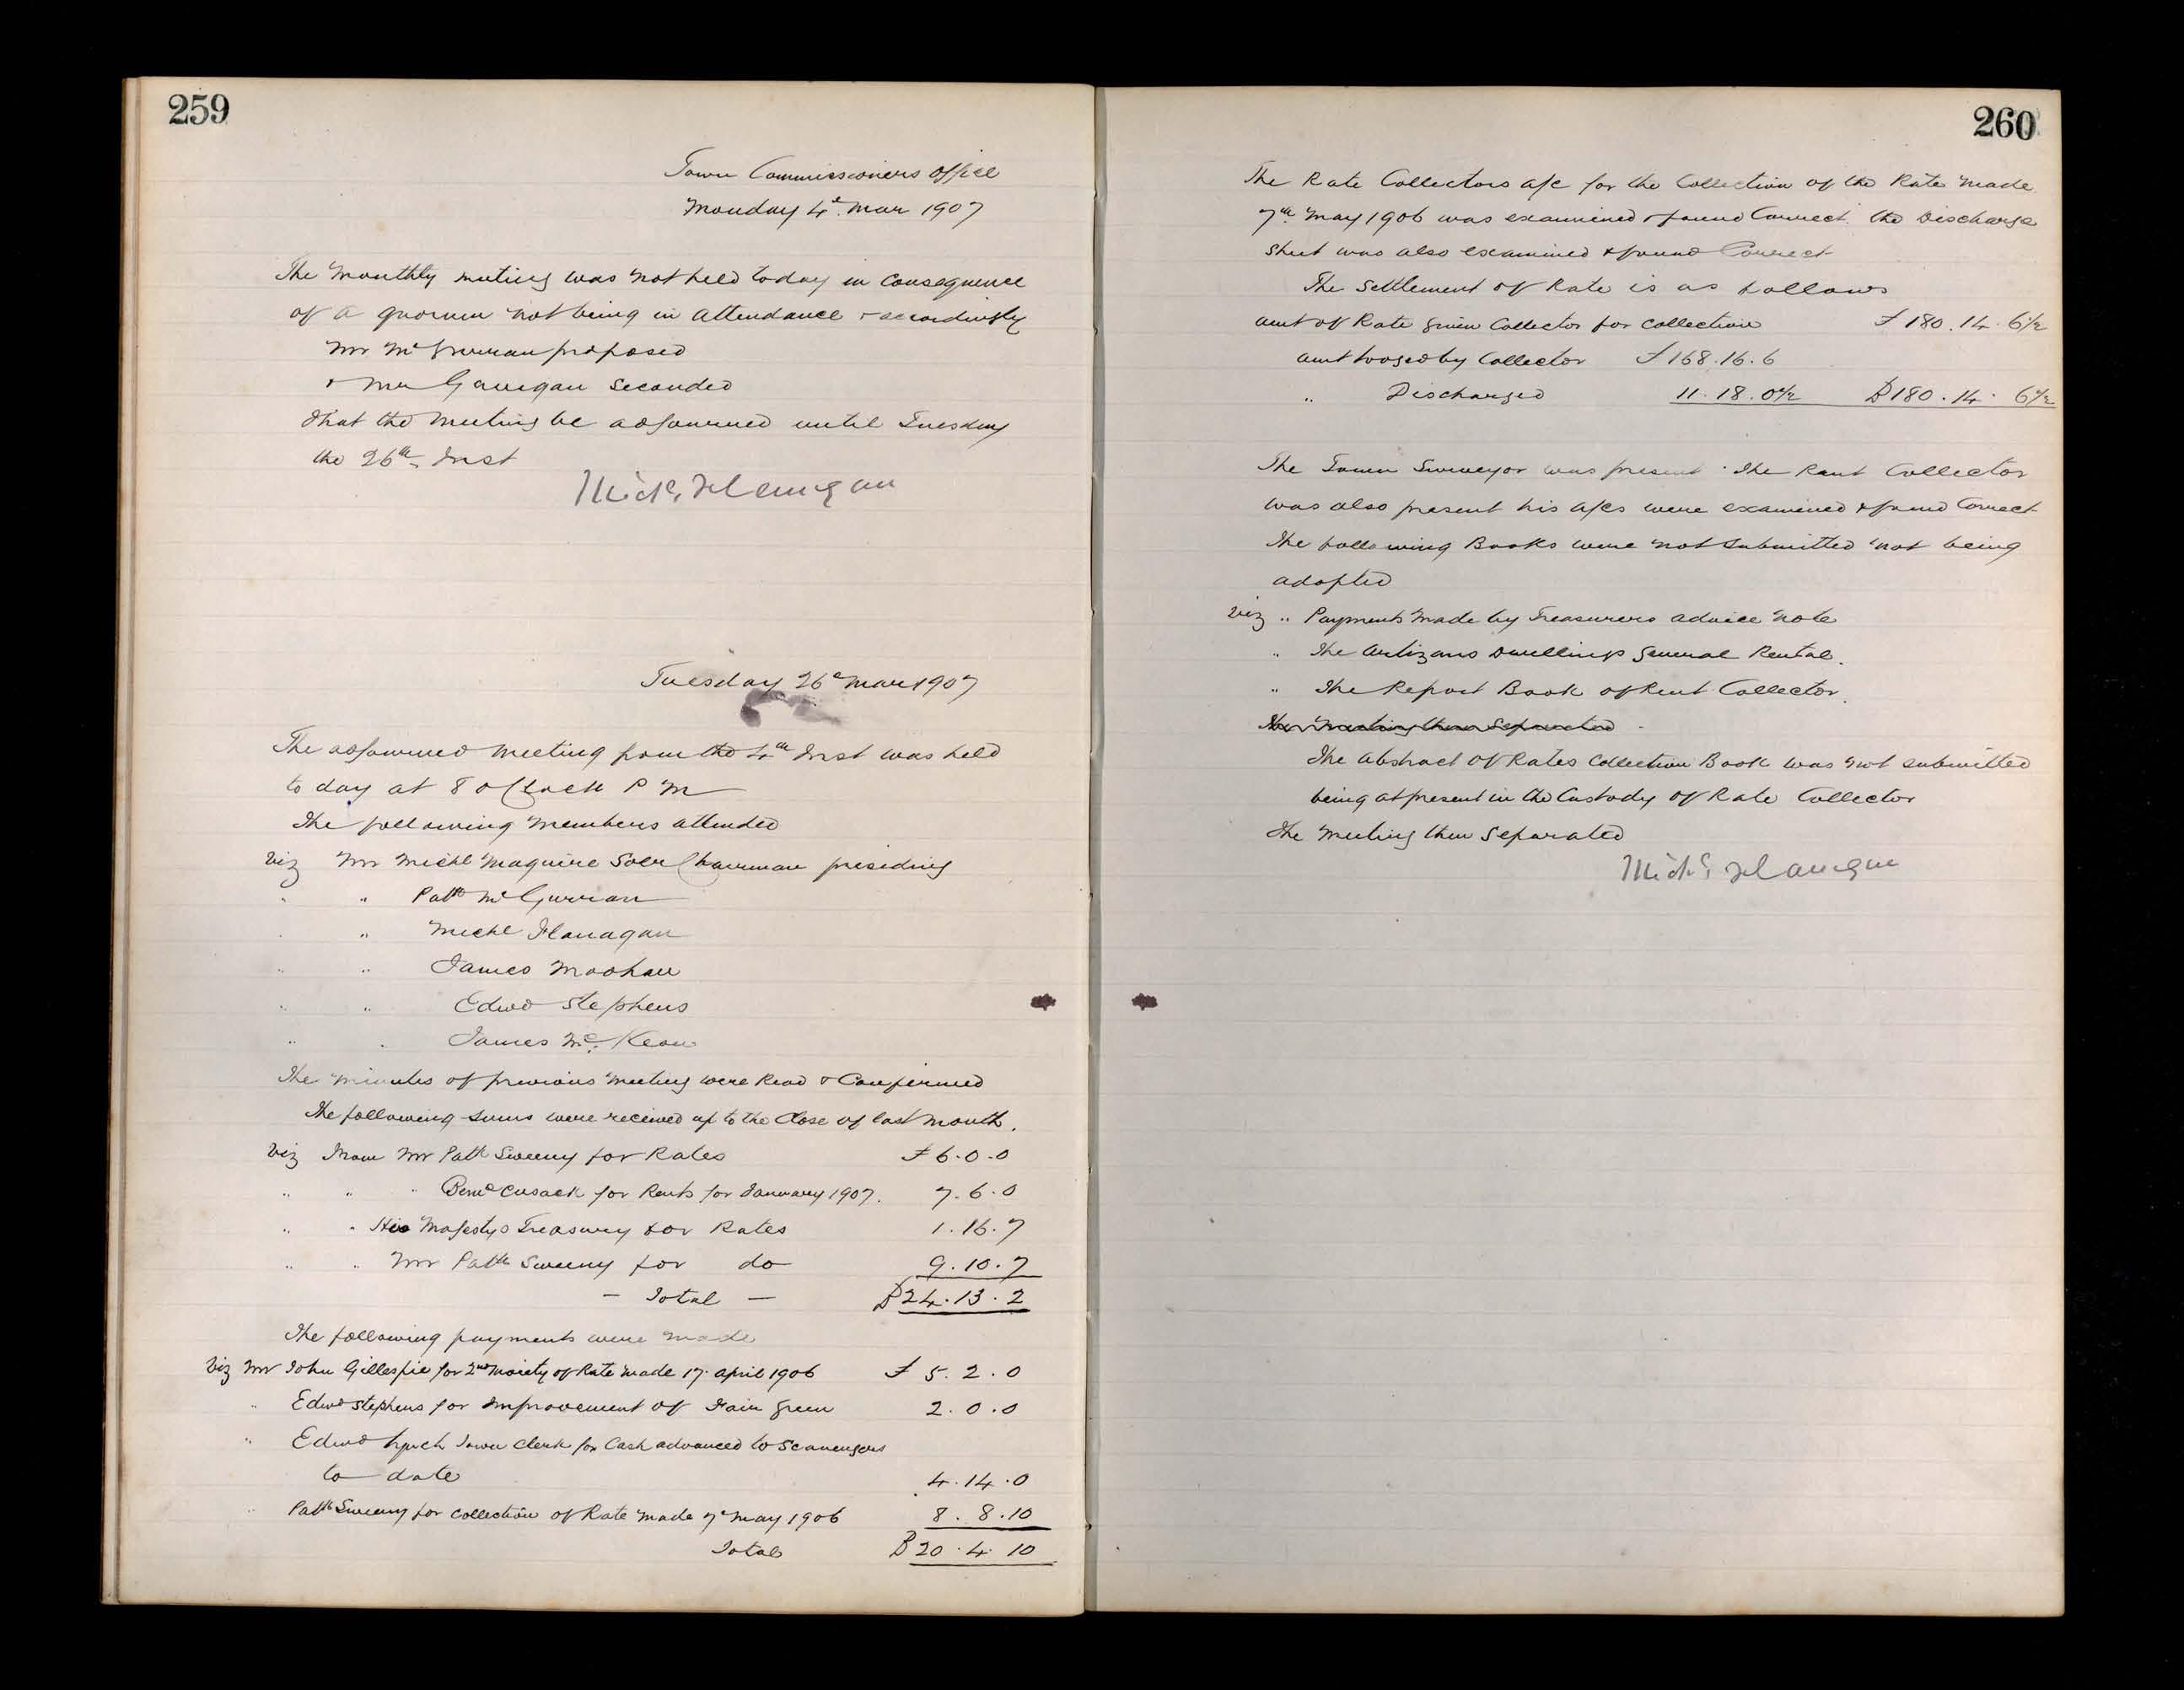 259
Town Commissioners Office
Monday 4th Mar 1907
The Monthly meeting was not held today in Consequence
of a quorum not being in attendance & accordingly
Mr McGurran proposed
& Mr Ganigan Seconded
that the Meeting be adjourned until Tuesday
the 26th Inst
Michl Flanigan
Tuesday 26th Mar 1907
The adjourned meeting from the 4th Inst was held
to day at 8 oClock P M
The following Members attended
Viz Mr Michl Maguire Solr Chairman presiding
" " Pattk McGurran
" Michl Flanagan
" " James Moohan
" " Edwd Stephens
" " James McKeon
The minutes of previous meeting were Read & Confirmed
The following sums were received up to the Close of last Month.
Viz From Mr Pattk Sweeny for Rates £6.0.0
" " " Bernd Cusack for Rents for January 1907. 7.6.0
" " His Majestys Treasury for Rates 1.16.7
" " Mr Pattk Sweeny for do 9.10.7
- Total - £24.13.2
The following payments were made
Viz Mr John Gillespie for 2nd Moiety of Rate made 17 April 1906 £5.2.0
" Edwd Stephens for Improvement of Fair Green 2.0.0
" Edwd Lynch Town Clerk for Cash advanced to Scavengers
to date 4.14.0
" Pattk Sweeny for Collection of Rate made 7th May 1906 8.8.10
Total £20.4.10
260
The Rate Collectors a/c for the Collection of the Rate made
7th May 1906 was examined & found Correct the Discharge
Sheet was also examined & found Correct
The Settlement of Rate is as follows
amt of Rate given Collector for collection £180.14.6½
amt lodged by Collector £168.16.6
" Discharged 11.18.0½ £180.14.6½
The Town Surveyor was present. The Rent Collector
was also present his a/cs were examined & found Correct
The following Books were not submitted not being
adopted
Viz " Payments made by Treasurers advice note
" The Artizans Dwellings General Rental.
" The Report Book of Rent Collector.
The Meeting then Separated
The Abstract of Rates Collection Book was not submitted
being at present in the Custody of Rate Collector
The Meeting then Separated
Michl Flanigan